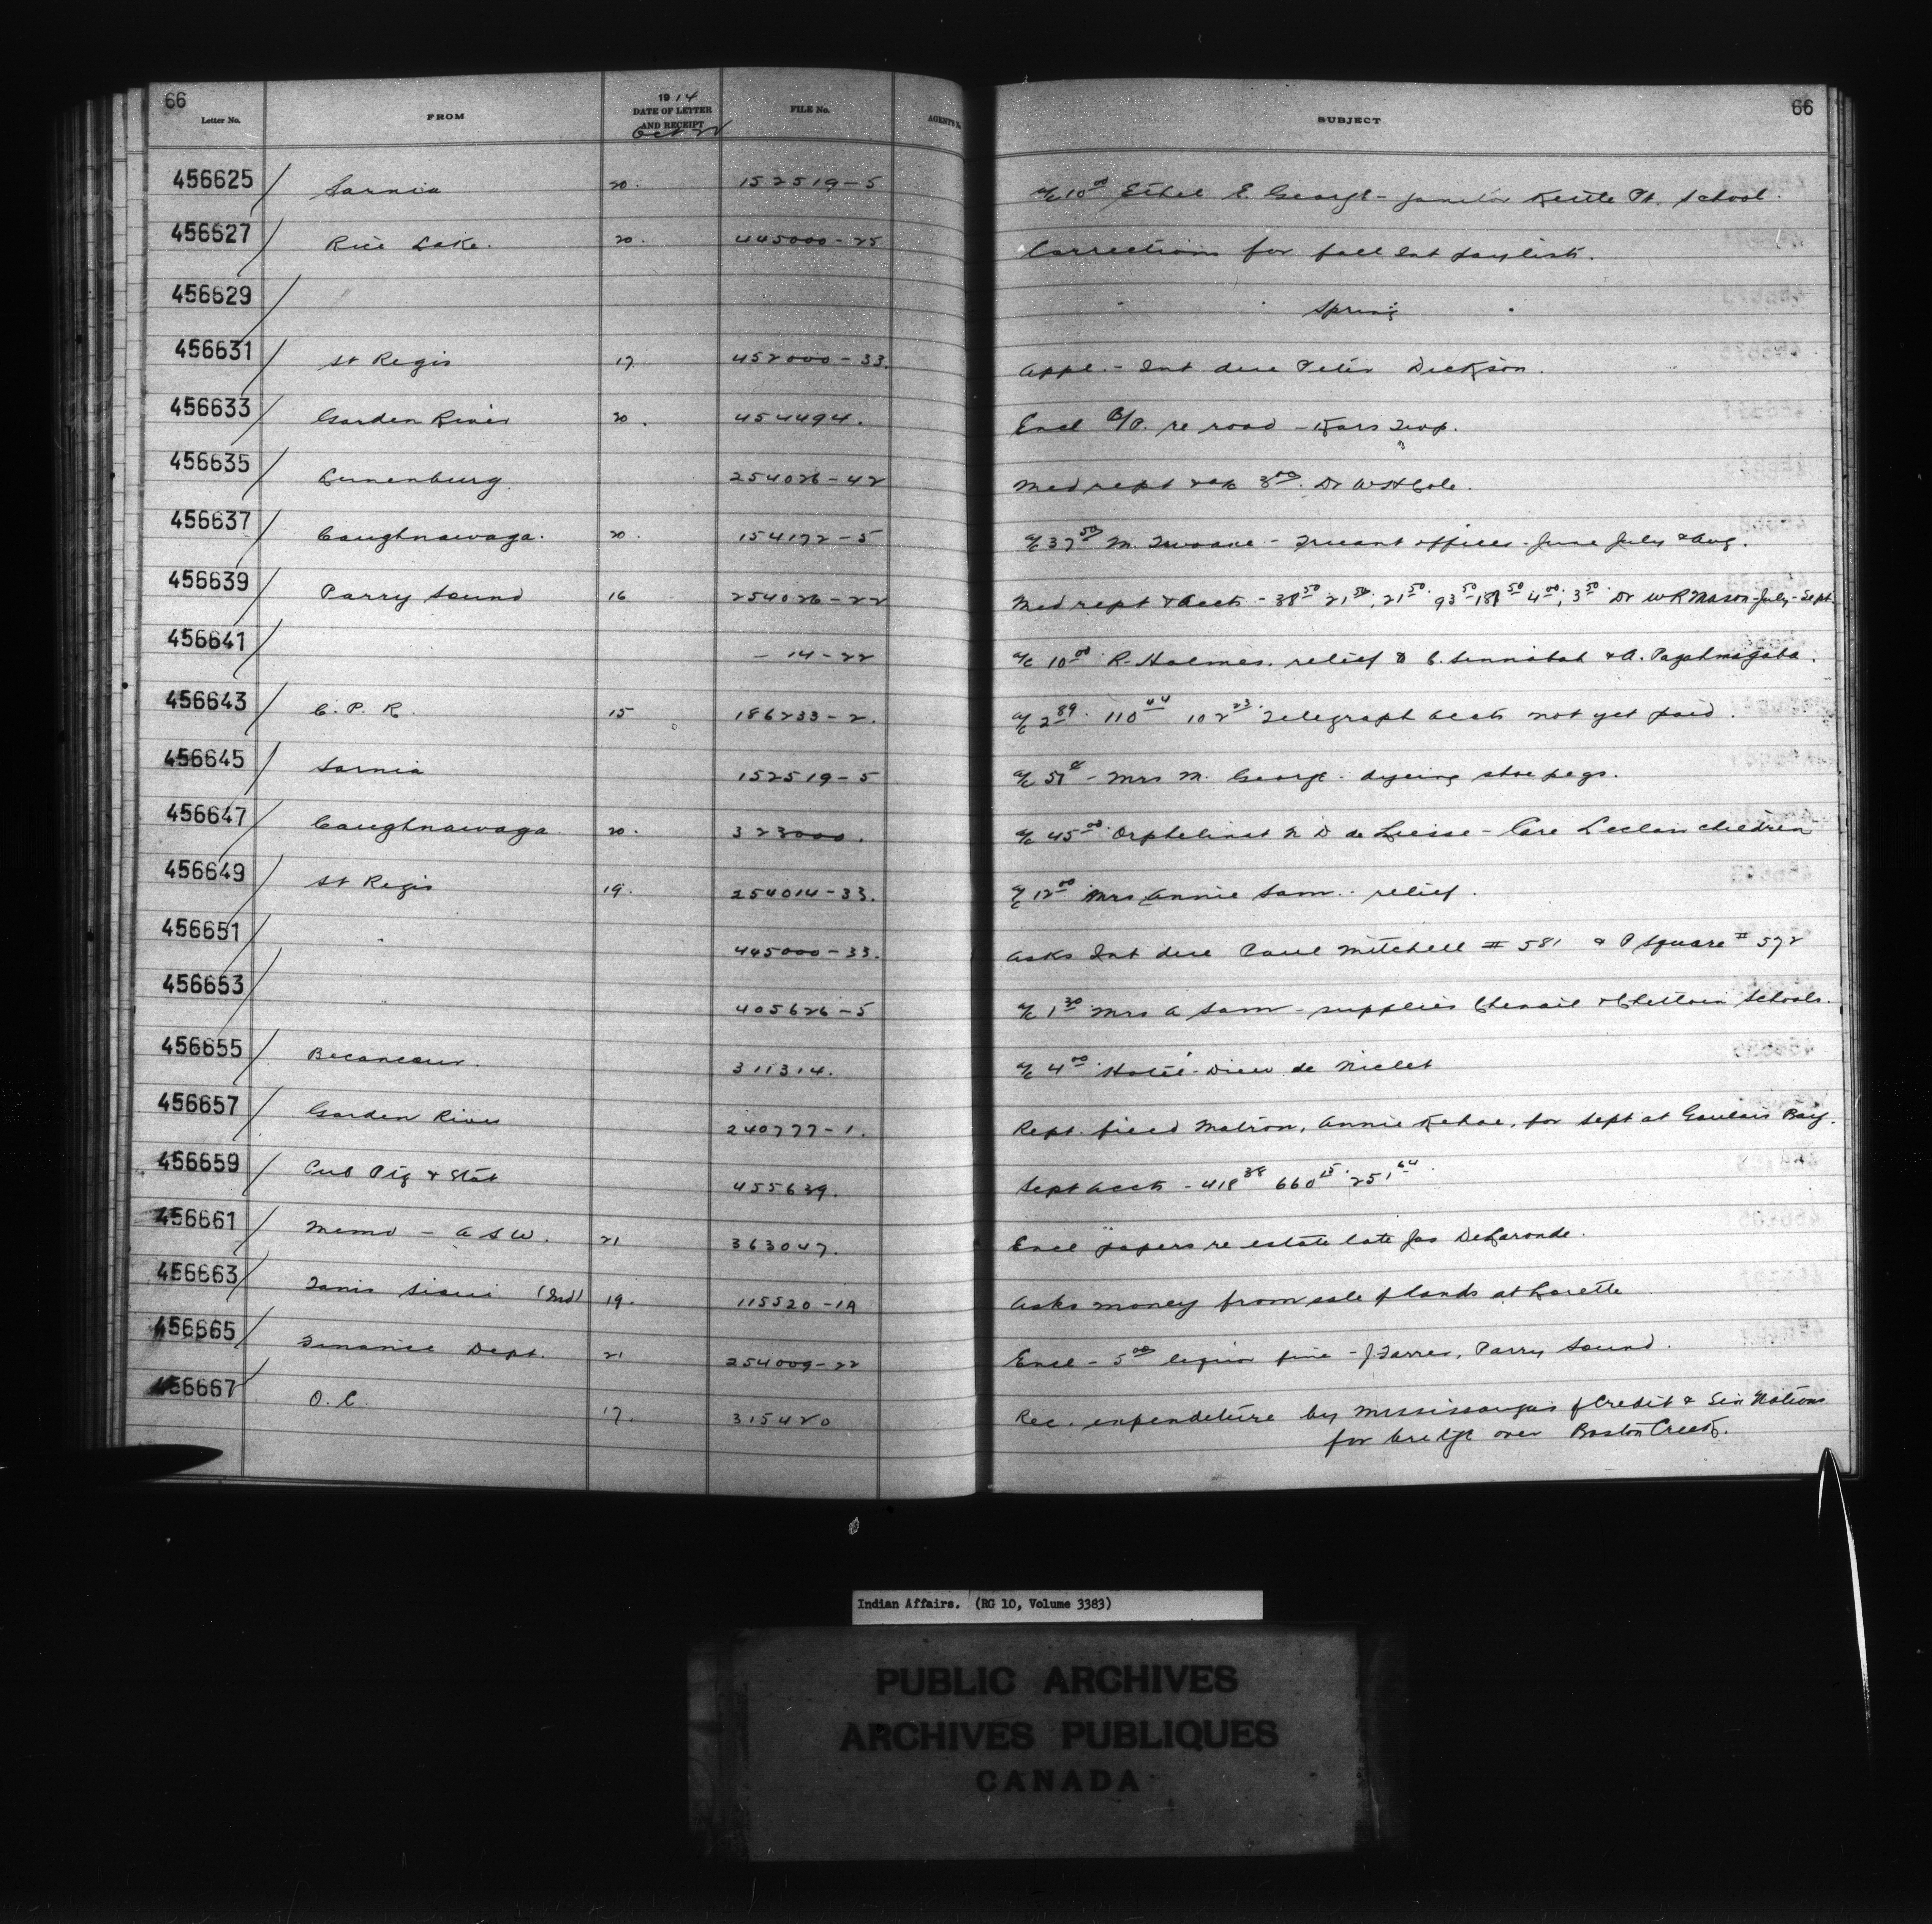 66
Letter No. FROM 1914 DATE OF LETTER AND RECEIPT FILE No. AGENT'S No. SUBJECT 66
Oct 22
456625 Sarnia 20. 152519-5 a/c 10.00 Ethel E. George - janitor Kettle Pt. School.
456627 Rice Lake. 20. 445000-25 Corrections for fall Int paylists.
456629 " " Spring "
456631 St Regis 17. 452000-33. Appl. - Int due Peter Dickson.
456633 Garden River 20. 454494. Encl B/P. re road - Kars Twp.
456635 Lunenburg. 254026-42 Med rept & a/c 3.00 Dr W H Cole.
456637 Caughnawaga. 20. 154172-5 a/c 37.50 M. - Truant officer - June July & Aug.
456639 Parry Sound 16 254026-22 Med rept & Accts - 38.50 21.50, 21.50 93.50 189.50 4.00, 3.50 Dr W R Mason - July - Sept.
456641 - 14-22 a/c 10.00 R. Holmes. relief to C. & A.
456643 C. P. R. 15 186233-2. a/c 2.89 110.44 102.23 Telegraph accts not yet paid.
456645 Sarnia 152519-5 a/c 51¢ - Mrs M. George - dyeing shoe pegs.
456647 Caughnawaga. 20. 323000. a/c 45.00 Orphelinat N D de Liesse - Care Leclair children
456649 St Regis 19. 254014-33. a/c 12.00 Mrs Annie Sam. - relief.
456651 445000-33. Asks Int due Paul Mitchell # 581 & P Square # 572
456653 405626-5 a/c 1.30 Mrs A Sam - supplies Chenail & Schools.
456655 Becancour. 311314. a/c 4.00 Hotel-Dieu de Nicolet
456657 Garden River 240777-1. Rept. field Matron, Annie Kehoe, for Sept at Goulais Bay.
456659 Cub Ptg & Stat 455639. Sept accts - 418.38 660.15 251.64
456661 Memo - A S W. 21 363047. Encl papers re estate late Jas DeLaronde.
456663 Sioui (Ind) 19. 115520-1A Asks money from sale of lands at Lorette
456665 Finance Dept. 21 254009-22 Encl - 5.00 liquor fine - J. Farrer, Parry Sound.
456667 O. C. 17. 315420 Rec. expenditure by Mississaugas of Credit & Six Nations
for bridge over Boston Creek.
Indian Affairs. (RG 10, Volume 3383)
PUBLIC ARCHIVES
ARCHIVES PUBLIQUES
CANADA